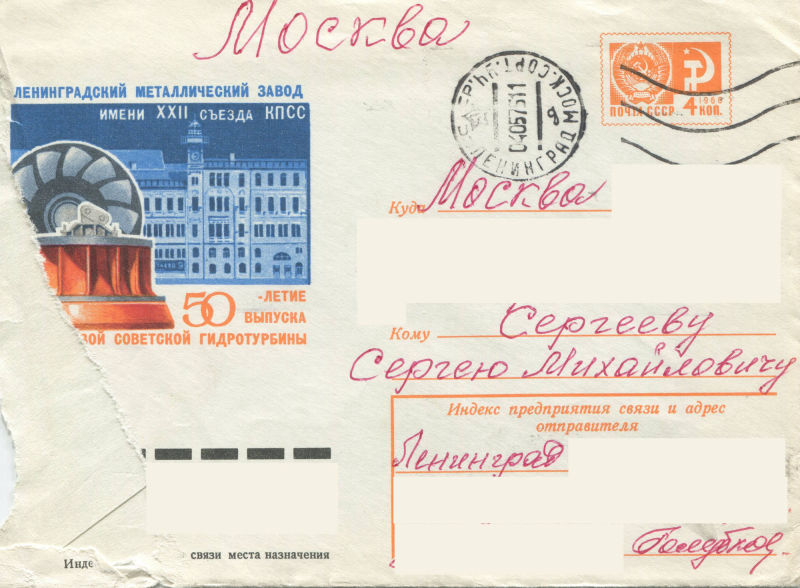 Москва
ЛЕНИНГРАДСКИЙ МЕТАЛЛИЧЕСКИЙ ЗАВОД
ИМЕНИ XXII СЪЕЗДА КПСС
50 -ЛЕТИЕ
ВЫПУСКА
ВОЙ СОВЕТСКОЙ ГИДРОТУРБИНЫ
ЛЕНИНГРАД МОСК.СОРТ.УЧ
1966
ПОЧТА СССР 4 КОП.
Куда Москва
Кому Сергееву
Сергею Михайловичу
Индекс предприятия связи и адрес
отправителя
Ленинград
Инде связи места назначения